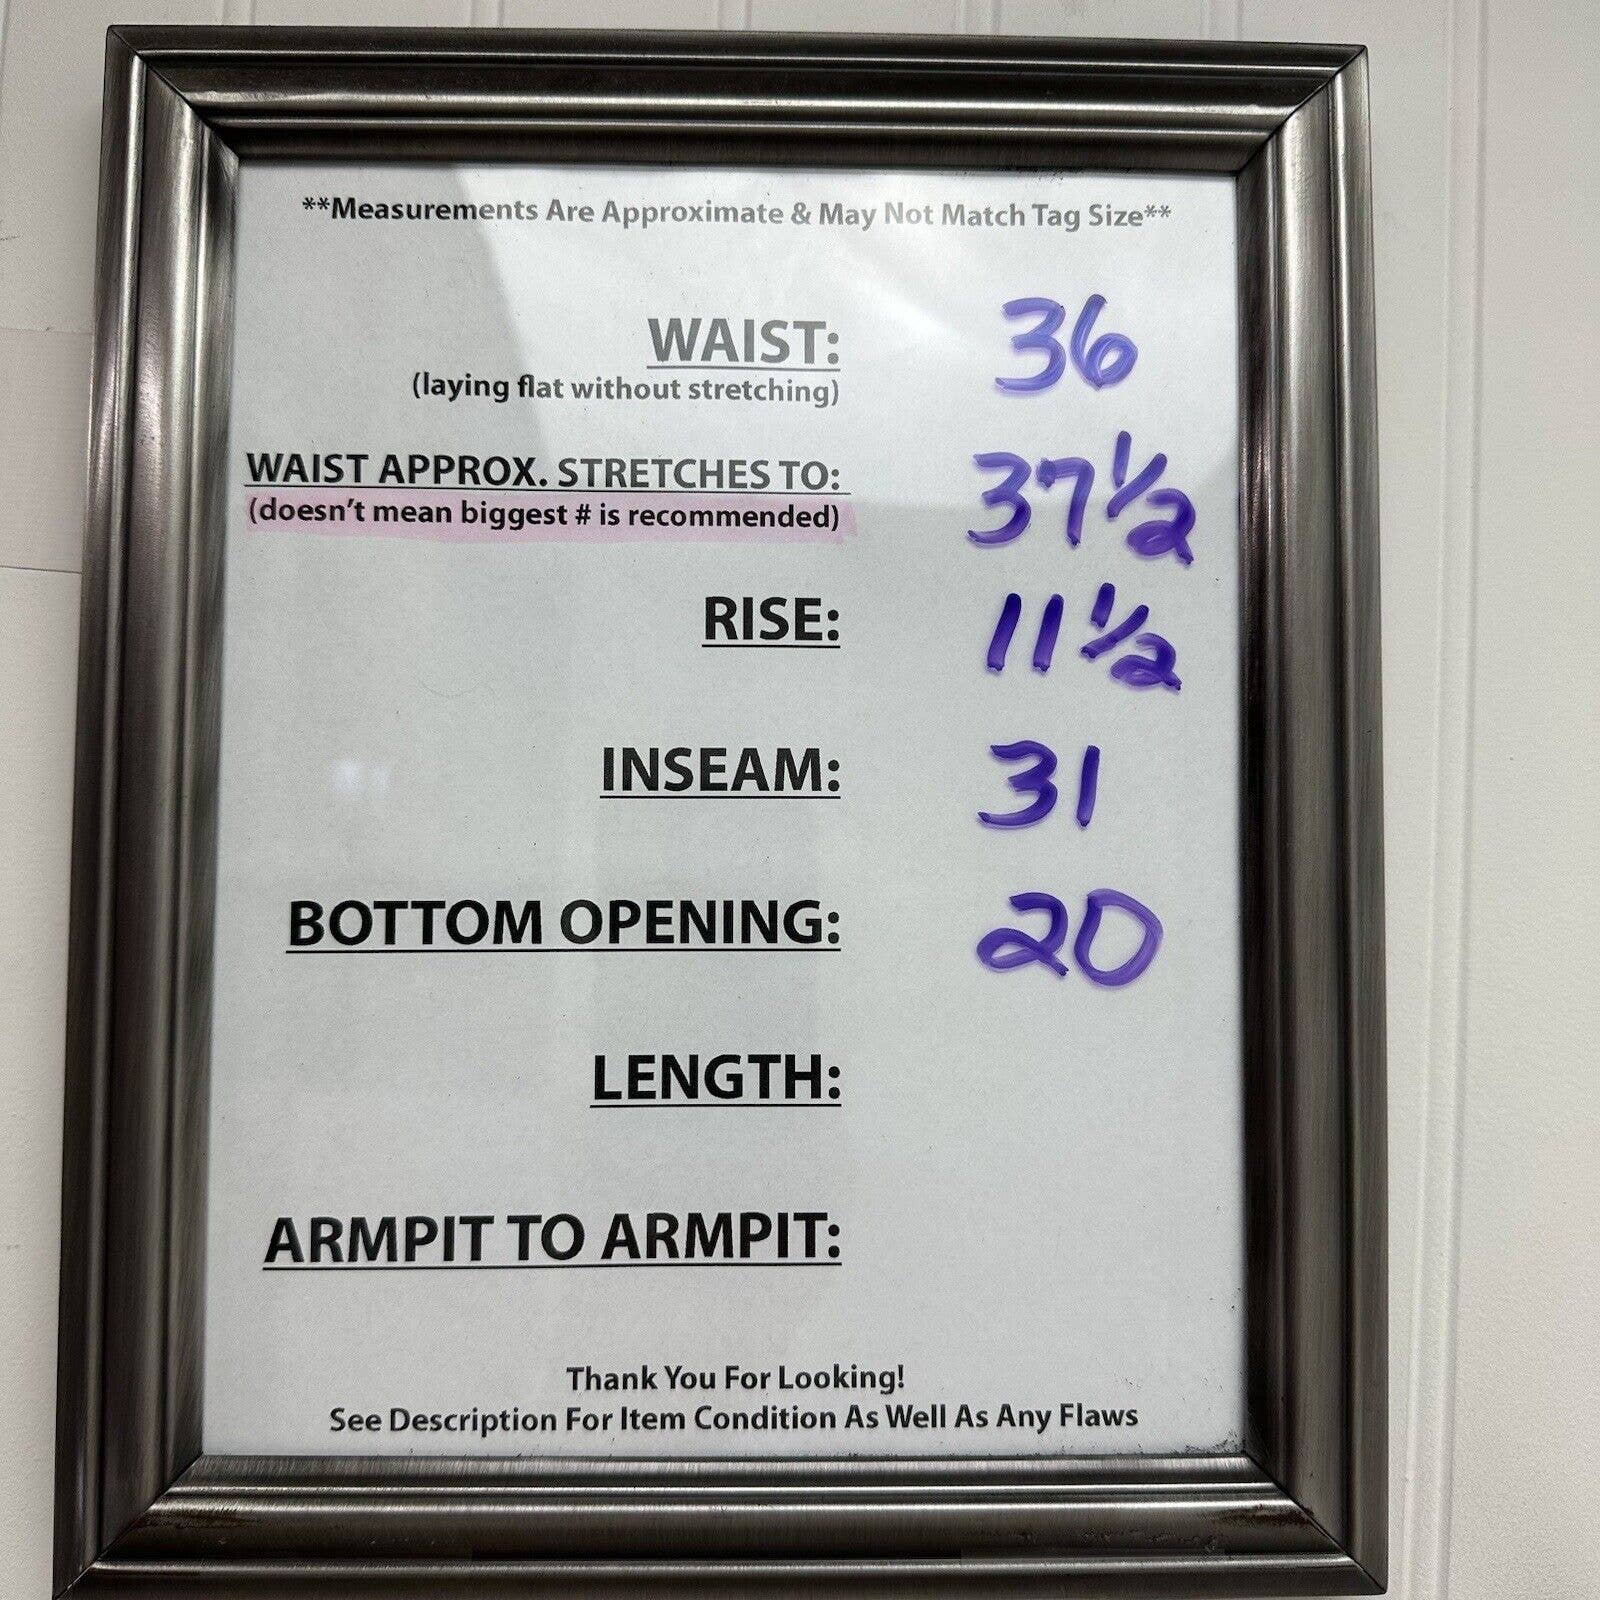 **Measurements Are Approximate & May Not Match Tag Size**
WAIST: 36
(laying flat without stretching)
WAIST APPROX. STRETCHES TO: 37 1/2
(doesn't mean biggest # is recommended)
RISE: 11 1/2
INSEAM: 31
BOTTOM OPENING: 20
LENGTH:
ARMPIT TO ARMPIT:
Thank You For Looking!
See Description For Item Condition As Well As Any Flaws